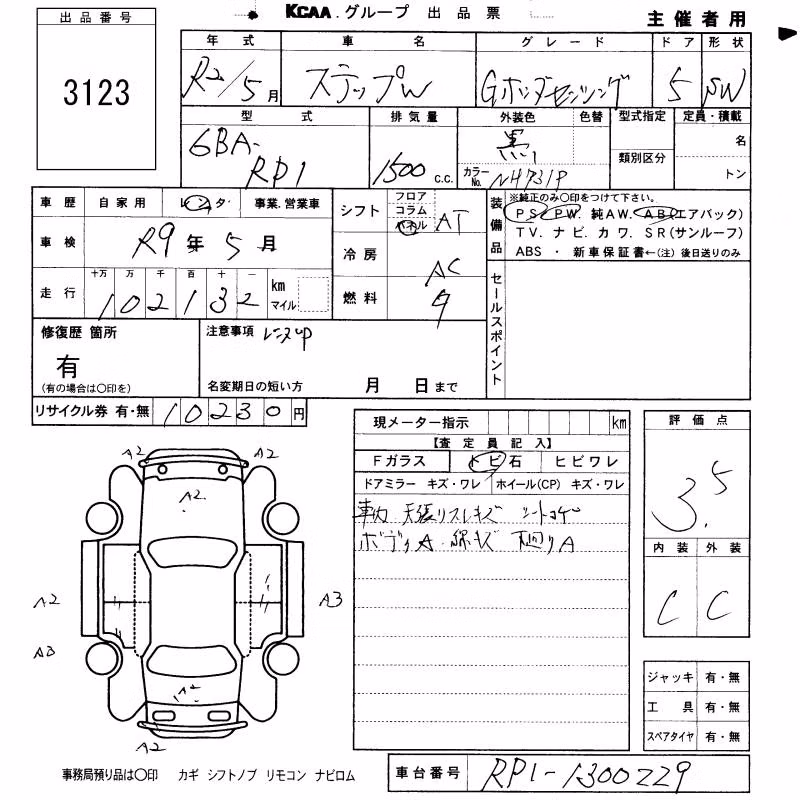 出品番号
3123
KCAA グループ 出品票
主催者用
年式 車名 グレード ドア 形状
R2/5月 ステップW Gホンダセンシング 5 SW
型式 排気量 外装色 色替 型式指定 定員・積載
6BA-RP1 1500 c.c. 黒 類別区分 名
カラーNo. NH731P トン
車歴 自家用 レンタ 事業.営業車
車検 R9年5月
走行 十万 万 千 百 十 一 km マイル
102132
シフト フロア コラム パネル AT
冷房 AC
燃料 ガ
装備品 ※純正のみ○印をつけて下さい。
PS. PW. 純AW. AB(エアバック)
TV. ナビ. カワ. SR(サンルーフ)
ABS ・ 新車保証書←(注) 後日送りのみ
セールスポイント
修復歴 箇所
有
(有の場合は○印を)
注意事項 レンタUP
名変期日の短い方 月 日まで
リサイクル券 有・無 10230円
現メーター指示 km
【査定員記入】
Fガラス トビ石 ヒビワレ
ドアミラー キズ・ワレ ホイール(CP) キズ・ワレ
車内 天張りスレキズ シートコゲ
ボディA 線キズ 下廻りA
評価点
3.5
内装 外装
C C
A2 A2
A2.
A2 A3
A3
A2
A2
ジャッキ 有・無
工具 有・無
スペアタイヤ 有・無
事務局預り品は○印 カギ シフトノブ リモコン ナビロム
車台番号 RP1-1300229